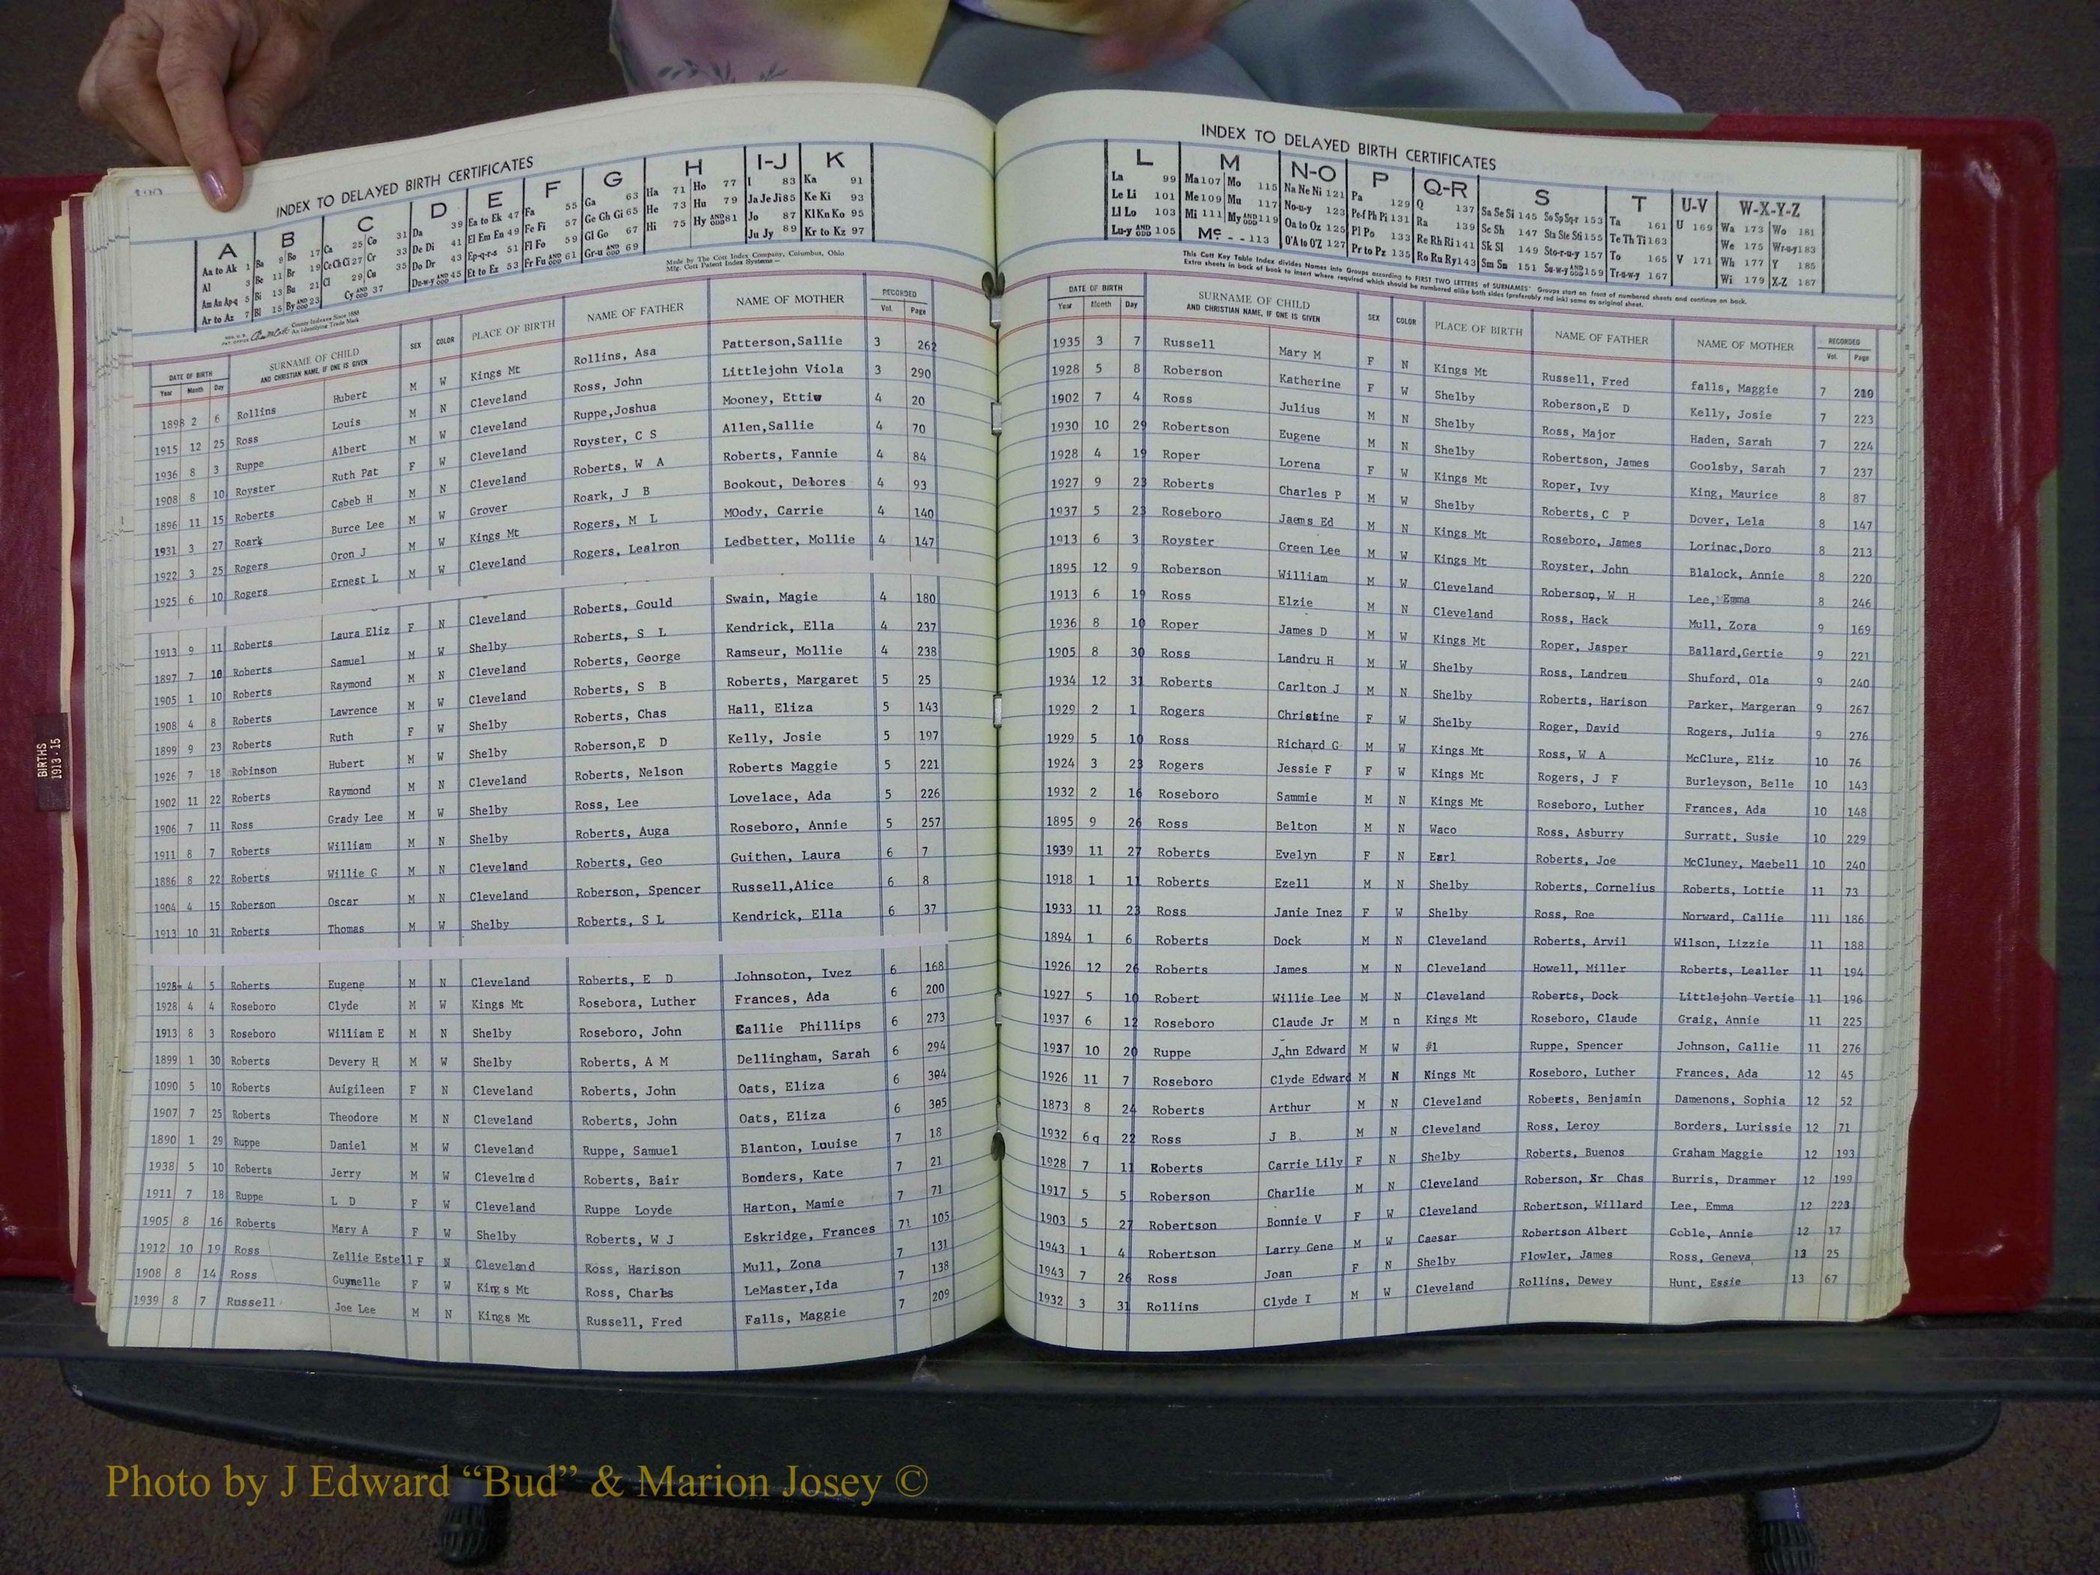 INDEX TO DELAYED BIRTH CERTIFICATES
A B C D E F G H I-J K
Aa to Ak 1 Ba 9 Bo 17 Ca 25 Co 31 Da 39 Ea to Ek 47 Fa 55 Ga 63 Ha 71 Ho 77 I 83 Ka 91
Al 3 Be 11 Br 19 Ce Ch Ci 27 Cr 33 De Di 41 El Em En 49 Fe Fi 57 Ge Gh Gi 65 He 73 Hu 79 Ja Je Ji 85 Ke Ki 93
Am An Ap-q 5 Bi 13 Bu 21 Cl 29 Cu 35 Do Dr 43 Ep-q-r-s 51 Fl Fo 59 Gl Go 67 Hi 75 Hy AND ODD 81 Jo 87 Kl Kn Ko 95
Ar to Az 7 Bl 15 By AND ODD 23 Cy AND ODD 37 Du-w-y AND ODD 45 Et to Ez 53 Fr Fu AND ODD 61 Gr-u AND ODD 69 Ju Jy 89 Kr to Kz 97
Made by The Cott Index Company, Columbus, Ohio
Mfg. Cott Patent Index Systems
County Indexes Since 1888
An Identifying Trade Mark
DATE OF BIRTH SURNAME OF CHILD SEX COLOR PLACE OF BIRTH NAME OF FATHER NAME OF MOTHER RECORDED
Year Month Day AND CHRISTIAN NAME, IF ONE IS GIVEN Vol. Page
1898 2 6 Rollins Hubert M W Kings Mt Rollins, Asa Patterson,Sallie 3 262
1915 12 25 Ross Louis M N Cleveland Ross, John Littlejohn Viola 3 290
1936 8 3 Ruppe Albert M W Cleveland Ruppe,Joshua Mooney, Ettiw 4 20
1908 8 10 Royster Ruth Pat F W Cleveland Royster, C S Allen,Sallie 4 70
1896 11 15 Roberts Cabeb H M N Cleveland Roberts, W A Roberts, Fannie 4 84
1931 3 27 Roark Burce Lee M W Grover Roark, J B Bookout, Delores 4 93
1922 3 25 Rogers Oron J M W Kings Mt Rogers, M L MOody, Carrie 4 140
1925 6 10 Rogers Ernest L M W Cleveland Rogers, Lealron Ledbetter, Mollie 4 147
1913 9 11 Roberts Laura Eliz F N Cleveland Roberts, Gould Swain, Magie 4 180
1897 7 10 Roberts Samuel M W Shelby Roberts, S L Kendrick, Ella 4 237
1905 1 10 Roberts Raymond M N Cleveland Roberts, George Ramseur, Mollie 4 238
1908 4 8 Roberts Lawrence M W Cleveland Roberts, S B Roberts, Margaret 5 25
1899 9 23 Roberts Ruth F W Shelby Roberts, Chas Hall, Eliza 5 143
1926 7 18 Robinson Hubert M W Shelby Roberson,E D Kelly, Josie 5 197
1902 11 22 Roberts Raymond M N Cleveland Roberts, Nelson Roberts Maggie 5 221
1906 7 11 Ross Grady Lee M W Shelby Ross, Lee Lovelace, Ada 5 226
1911 8 7 Roberts William M N Shelby Roberts, Auga Roseboro, Annie 5 257
1886 8 22 Roberts Willie G M N Cleveland Roberts, Geo Guithen, Laura 6 7
1904 4 15 Roberson Oscar M N Cleveland Roberson, Spencer Russell,Alice 6 8
1913 10 31 Roberts Thomas M W Shelby Roberts, S L Kendrick, Ella 6 37
1928 4 5 Roberts Eugene M N Cleveland Roberts, E D Johnsoton, Ivez 6 168
1928 4 4 Roseboro Clyde M W Kings Mt Rosebora, Luther Frances, Ada 6 200
1913 8 3 Roseboro William E M N Shelby Roseboro, John Callie Phillips 6 273
1899 1 30 Roberts Devery H M W Shelby Roberts, A M Dellingham, Sarah 6 294
1090 5 10 Roberts Auigileen F N Cleveland Roberts, John Oats, Eliza 6 304
1907 7 25 Roberts Theodore M N Cleveland Roberts, John Oats, Eliza 6 305
1890 1 29 Ruppe Daniel M W Cleveland Ruppe, Samuel Blanton, Louise 7 18
1938 5 10 Roberts Jerry M W Clevelnad Roberts, Bair Bonders, Kate 7 21
1911 7 18 Ruppe L D F W Cleveland Ruppe Loyde Harton, Mamie 7 71
1905 8 16 Roberts Mary A F W Shelby Roberts, W J Eskridge, Frances 71 105
1912 10 19 Ross Zellie Estell F N Cleveland Ross, Harison Mull, Zona 7 131
1908 8 14 Ross Guynelle F W Kings Mt Ross, Charles LeMaster,Ida 7 138
1939 8 7 Russell Joe Lee M N Kings Mt Russell, Fred Falls, Maggie 7 209
INDEX TO DELAYED BIRTH CERTIFICATES
L M N-O P Q-R S T U-V W-X-Y-Z
La 99 Ma 107 Mo 115 Na Ne Ni 121 Pa 129 Q 137 Sa Se Si 145 So Sp Sq-r 153 Ta 161 U 169 Wa 173 Wo 181
Le Li 101 Me 109 Mu 117 No-u-y 123 Pe-f Ph Pi 131 Ra 139 Sc Sh 147 Sta Ste Sti 155 Te Th Ti 163 We 175 Wr-u-y 183
Ll Lo 103 Mi 111 My AND ODD 119 Oa to Oz 125 Pl Po 133 Re Rh Ri 141 Sk Sl 149 Sto-r-u-y 157 To 165 V 171 Wh 177 Y 185
Lu-y AND ODD 105 Mc - - 113 O'A to O'Z 127 Pr to Pz 135 Ro Ru Ry 143 Sm Sn 151 Su-w-y AND ODD 159 Tr-u-w-y 167 Wi 179 X-Z 187
This Cott Key Table Index divides Names into Groups according to FIRST TWO LETTERS of SURNAMES. Groups start on front of numbered sheets and continue on back.
Extra sheets in back of book to insert where required which should be numbered alike both sides (preferably red ink) same as original sheet.
DATE OF BIRTH SURNAME OF CHILD SEX COLOR PLACE OF BIRTH NAME OF FATHER NAME OF MOTHER RECORDED
Year Month Day AND CHRISTIAN NAME, IF ONE IS GIVEN Vol. Page
1935 3 7 Russell Mary M F N Kings Mt Russell, Fred falls, Maggie 7 210
1928 5 8 Roberson Katherine F W Shelby Roberson,E D Kelly, Josie 7 223
1902 7 4 Ross Julius M N Shelby Ross, Major Haden, Sarah 7 224
1930 10 29 Robertson Eugene M N Shelby Robertson, James Goolsby, Sarah 7 237
1928 4 19 Roper Lorena F W Kings Mt Roper, Ivy King, Maurice 8 87
1927 9 23 Roberts Charles P M W Shelby Roberts, C P Dover, Lela 8 147
1937 5 23 Roseboro Jaems Ed M N Kings Mt Roseboro, James Lorinac,Doro 8 213
1913 6 3 Royster Green Lee M W Kings Mt Royster, John Blalock, Annie 8 220
1895 12 9 Roberson William M W Cleveland Roberson, W H Lee, Emma 8 246
1913 6 19 Ross Elzie M N Cleveland Ross, Hack Mull, Zora 9 169
1936 8 10 Roper James D M W Kings Mt Roper, Jasper Ballard,Gertie 9 221
1905 8 30 Ross Landru H M W Shelby Ross, Landreu Shuford, Ola 9 240
1934 12 31 Roberts Carlton J M N Shelby Roberts, Harison Parker, Margeran 9 267
1929 2 1 Rogers Christine F W Shelby Roger, David Rogers, Julia 9 276
1929 5 10 Ross Richard G M W Kings Mt Ross, W A McClure, Eliz 10 76
1924 3 23 Rogers Jessie F F W Kings Mt Rogers, J F Burleyson, Belle 10 143
1932 2 16 Roseboro Sammie M N Kings Mt Roseboro, Luther Frances, Ada 10 148
1895 9 26 Ross Belton M N Waco Ross, Asburry Surratt, Susie 10 229
1939 11 27 Roberts Evelyn F N Earl Roberts, Joe McCluney, Maebell 10 240
1918 1 11 Roberts Ezell M N Shelby Roberts, Cornelius Roberts, Lottie 11 73
1933 11 23 Ross Janie Inez F W Shelby Ross, Roe Norward, Callie 111 186
1894 1 6 Roberts Dock M N Cleveland Roberts, Arvil Wilson, Lizzie 11 188
1926 12 26 Roberts James M N Cleveland Howell, Miller Roberts, Lealler 11 194
1927 5 10 Robert Willie Lee M N Cleveland Roberts, Dock Littlejohn Vertie 11 196
1937 6 12 Roseboro Claude Jr M n Kings Mt Roseboro, Claude Graig, Annie 11 225
1937 10 20 Ruppe John Edward M W #1 Ruppe, Spencer Johnson, Gallie 11 276
1926 11 7 Roseboro Clyde Edward M N Kings Mt Roseboro, Luther Frances, Ada 12 45
1873 8 24 Roberts Arthur M N Cleveland Roberts, Benjamin Damenons, Sophia 12 52
1932 6q 22 Ross J B. M N Cleveland Ross, Leroy Borders, Lurissie 12 71
1928 7 11 Roberts Carrie Lily F N Shelby Roberts, Buenos Graham Maggie 12 193
1917 5 5 Roberson Charlie M N Cleveland Roberson, Sr Chas Burris, Drammer 12 199
1903 5 27 Robertson Bonnie V F W Cleveland Robertson, Willard Lee, Emma 12 223
1943 1 4 Robertson Larry Gene M W Caesar Robertson Albert Goble, Annie 12 17
1943 7 26 Ross Joan F N Shelby Flowler, James Ross, Geneva 13 25
1932 3 31 Rollins Clyde I M W Cleveland Rollins, Dewey Hunt, Essie 13 67
BIRTHS
1913-15
Photo by J Edward “Bud” & Marion Josey ©